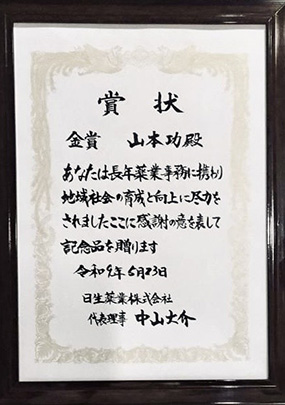 賞状
金賞 山本功殿
あなたは長年薬業事務に携わり
地域社会の育成と向上に尽力を
されましたここに感謝の意を表して
記念品を贈ります
令和9年5月23日
日生薬業株式会社
代表理事 中山大介